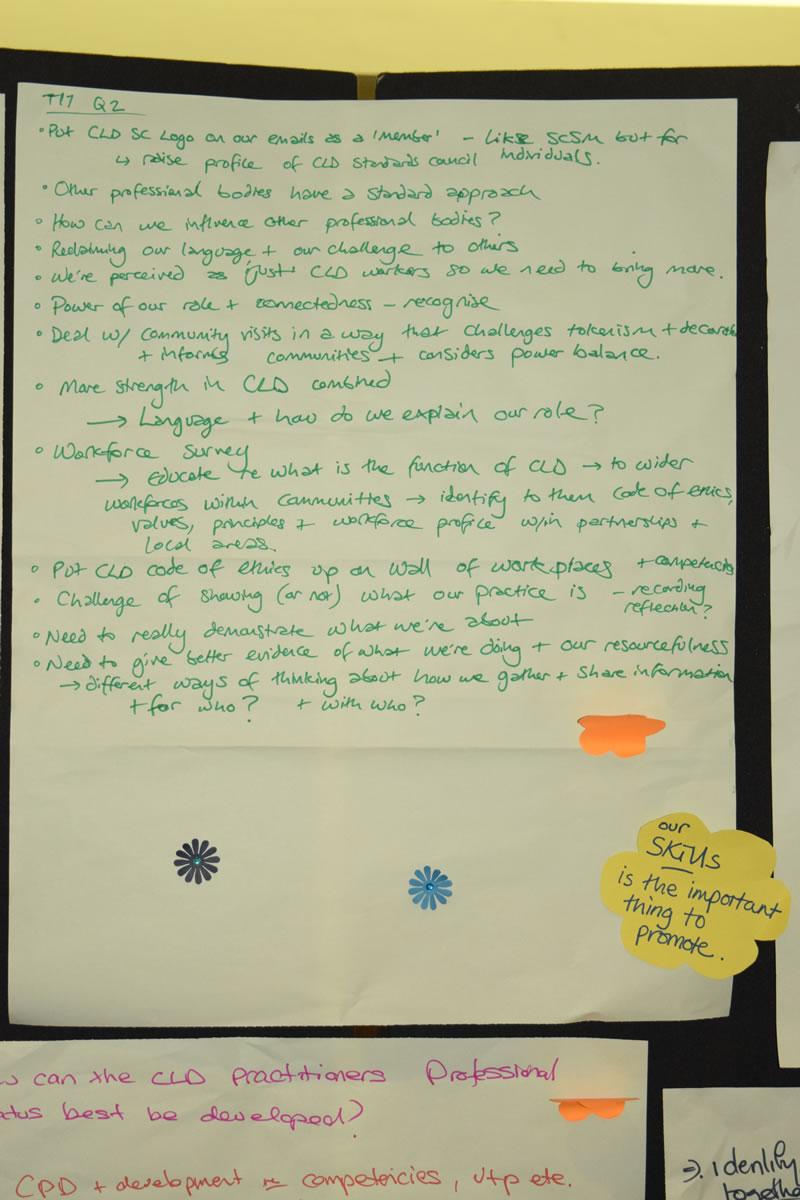 T17 Q2
• Put CLD SC Logo on our emails as a 'member' - like SCSM but for
↳ raise profile of CLD Standards council individuals.
• Other professional bodies have a standard approach
• How can we influence other professional bodies?
• Reclaiming our language + our challenge to others
• We're perceived as 'just' CLD workers so we need to bring more.
• Power of our role + connectedness - recognise
• Deal w/ community visits in a way that challenges tokenism +
+ informs communities + considers power balance.
• More strength in CLD combined
→ Language + how do we explain our role?
• Workforce Survey
→ Educate re what is the function of CLD → to wider
workforces within communities → identify to them code of ethics,
values, principles + workforce profile w/in partnerships +
local areas.
• Put CLD code of ethics up on wall of workplaces + competencies
• Challenge of showing (or not) what our practice is - recording
reflection?
• Need to really demonstrate what we're about
• Need to give better evidence of what we're doing + our resourcefulness
→ different ways of thinking about how we gather + share information
+ for who? + with who?
our
SKills
is the important
thing to
promote.
w can the CLD Practitioners Professional
atus best be developed?
CPD + development competicies, etc.
⇒. identify
togethe